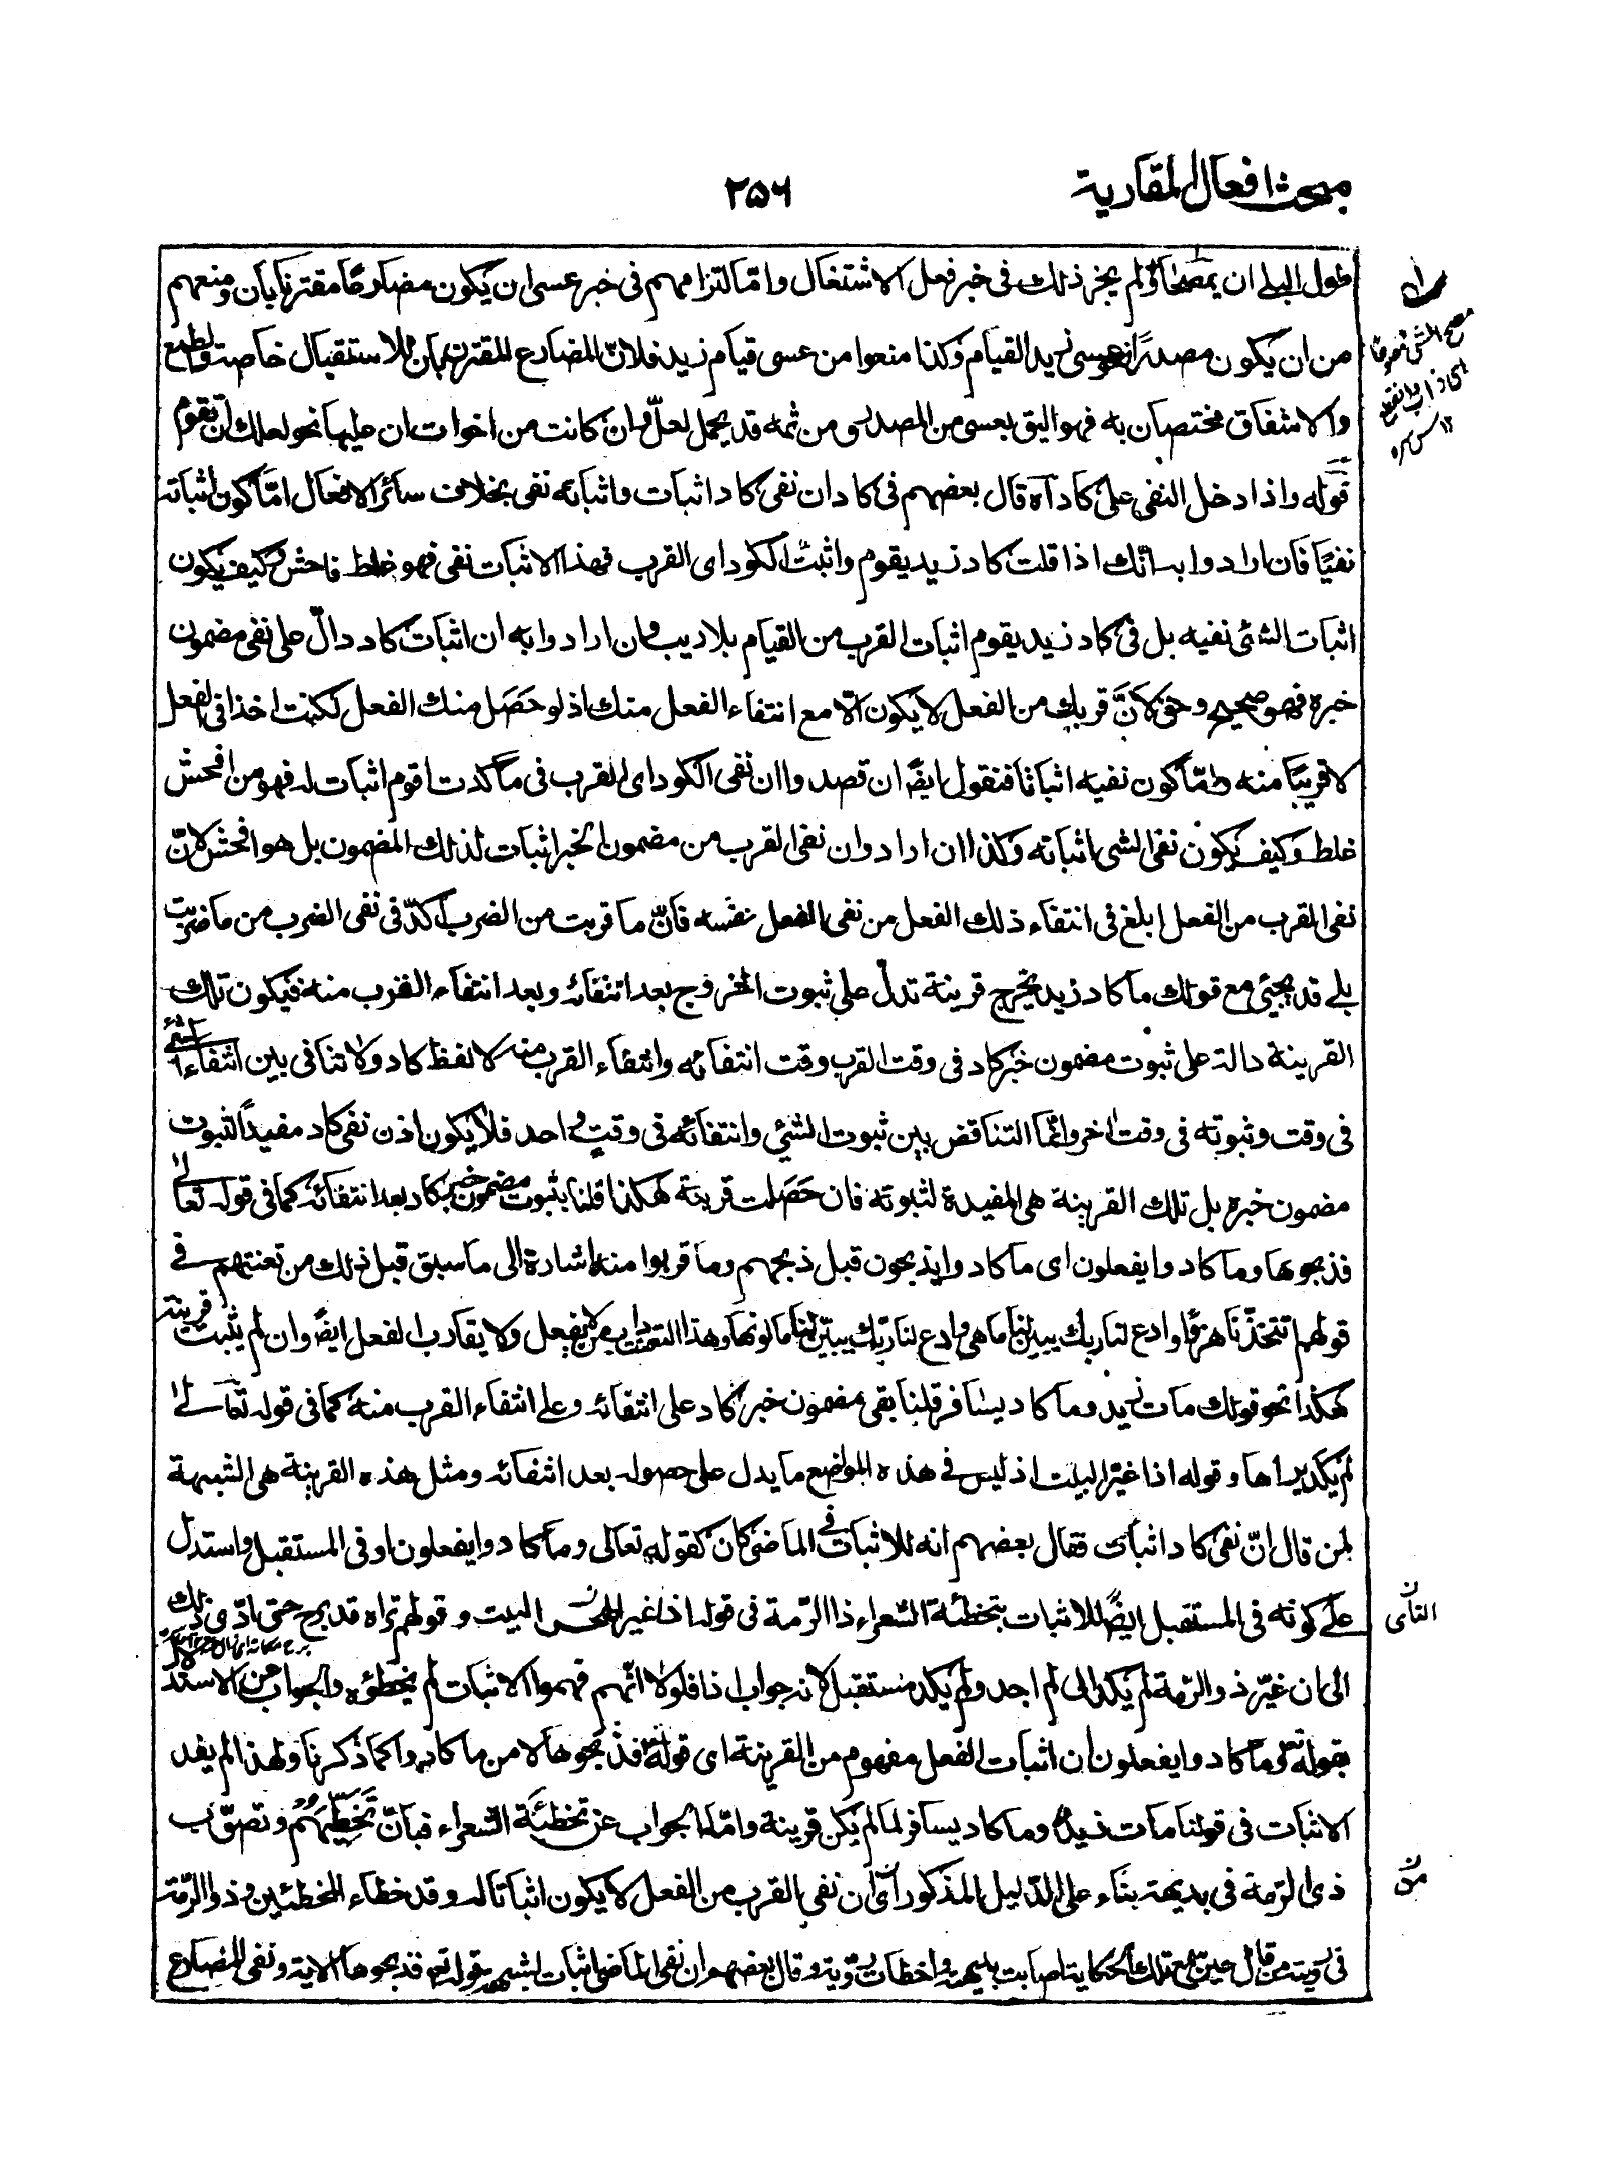 مبحث افعال المقاربة
٢٥٦
طول البلى ان يمصحا ولم يجز ذلك فى خبر فعل الاشتغال وامّا التزامهم فى خبر عسى ان يكون مضارعًا مقترنا بان ومنعهم
من ان يكون مصدرًا نحو عسى زيد القيام وكذا منعوا من عسى قيام زيد فلانّ المضارع المقترن بان للاستقبال خاصة والطمع
والاشفاق مختصان به فهو اليق بعسى من المصدر ومن ثمه قد يحمل لعلّ وان كانت من اخوات ان عليها نحو لعلك ان تقوم
قوله واذا دخل النفى على كاد آه قال بعضهم فى كاد ان نفى كاد اثبات واثباته نفى بخلاف سائر الافعال امّا كون اثباته
نفيًا فان ارادوا به انك اذا قلت كاد زيد يقوم واثبتّ الكود اى القرب فهذا الاثبات نفى فهو غلط فاحش وكيف يكون
اثبات الشئ نفيه بل فى كاد زيد يقوم اثبات القرب من القيام بلا ريب وان ارادوا به ان اثبات كاد دالّ على نفى مضمون
خبره فهو صحيح وحق لانّ قربك من الفعل لا يكون الّا مع انتفاء الفعل منك اذ لو حَصَل منك الفعل لكنت اخذا فى الفعل
لا قريبًا منه وامّا كون نفيه اثباتا فنقول ايضًا ان قصدوا ان نفى الكود اى القرب فى ما كدت اقوم اثبات له فهو من افحش
غلط وكيف يكون نفى الشى اثباته وكذا ان ارادوا ان نفى القرب من مضمون الخبر اثبات لذلك المضمون بل هو افحش لانّ
نفى القرب من الفعل ابلغ فى انتفاء ذلك الفعل من نفى الفعل نفسه فانّ ما قربت من الضرب اكدّ فى نفى الضرب من ما ضربت
بلى قد يجئ مع قولك ما كاد زيد يخرج قرينة تدلّ على ثبوت الخروج بعد انتفائه وبعد انتفاء القرب منه فيكون تلك
القرينة دالة على ثبوت مضمون خبر كاد فى وقت القرب وقت انتفائه وانتفاء القرب منه لا لفظ كاد ولا تنافى بين انتفاء الشئ
فى وقت وثبوته فى وقت اخر وانما التناقض بين ثبوت الشئ وانتفائه فى وقتٍ واحد فلا يكون اذن نفى كاد مفيدًا لثبوت
مضمون خبره بل تلك القرينة هى المفيدة لثبوته فان حَصَلت قرينة هكذا قلنا بثبوت مضمون خبر كاد بعد انتفائه كما فى قوله تعالى
فذبحوها وما كادوا يفعلون اى ما كادوا يذبحون قبل ذبحهم وما قربوا منه اشارة الى ما سبق قبل ذلك من تعنتهم فى
قولهم اتتخذنا هزوًا وادع لنا ربك يبين لنا ما هى وادع لنا ربّك يبيّن لنا ما لونها وهذا التعنت داب من لا يفعل ولا يقارب الفعل ايضًا وان لم يثبت قرينة
هكذا نحو قولك مات زيد وما كاد يسافر قلنا بقى مضمون خبر كاد على انتفائه وعلى انتفاء القرب منه كما فى قوله تعالى
لم يكد يراها وقوله اذا غيّر البيت اذ ليس فى هذه المواضع ما يدل على حصوله بعد انتفائه ومثل هذه القرينة هى الشبهة
لمن قال انّ نفى كاد اثبات فقال بعضهم انه للاثبات فى الماضى كان كقوله تعالى وما كادوا يفعلون او فى المستقبل واستدل
على كونه فى المستقبل ايضًا للاثبات بتخطئة الشعراء ذا الرّمة فى قوله اذا غير الهجر البيت وقولهم نراه قد برح حتى ادّى ذلك
النأى
الى ان غيّر ذو الرّمة لم يكد الى لم اجد ولم يكد مستقبل لانه جواب اذا فلولا انّهم فهموا الاثبات لم يخطؤه والجواب عن الاستدلال
بقوله تع وما كادوا يفعلون ان اثبات الفعل مفهوم من القرينة اى قوله فذبحوها لا من ما كادوا كما ذكرنا ولهذا لم يفد
الاثبات فى قولنا مات زيد وما كاد يسافر لما لم يكن قرينة وامّا الجواب عن تخطئة الشعراء فبانّ تخطئهم وتصوّب
ذى الرّمة فى بديهته بناء على الدّليل المذكور اى ان نفى القرب من الفعل لا يكون اثباتا له وقد خطاء المخطئين وذو الرّمة
من
فى رويته من قال حين بلغ تلك الحكاية اصابت بديهته واخطات رويّته وقال بعضهم ان نفى الماضى اثبات لشبهة قوله تع فذبحوها الاية ونفى المضارع